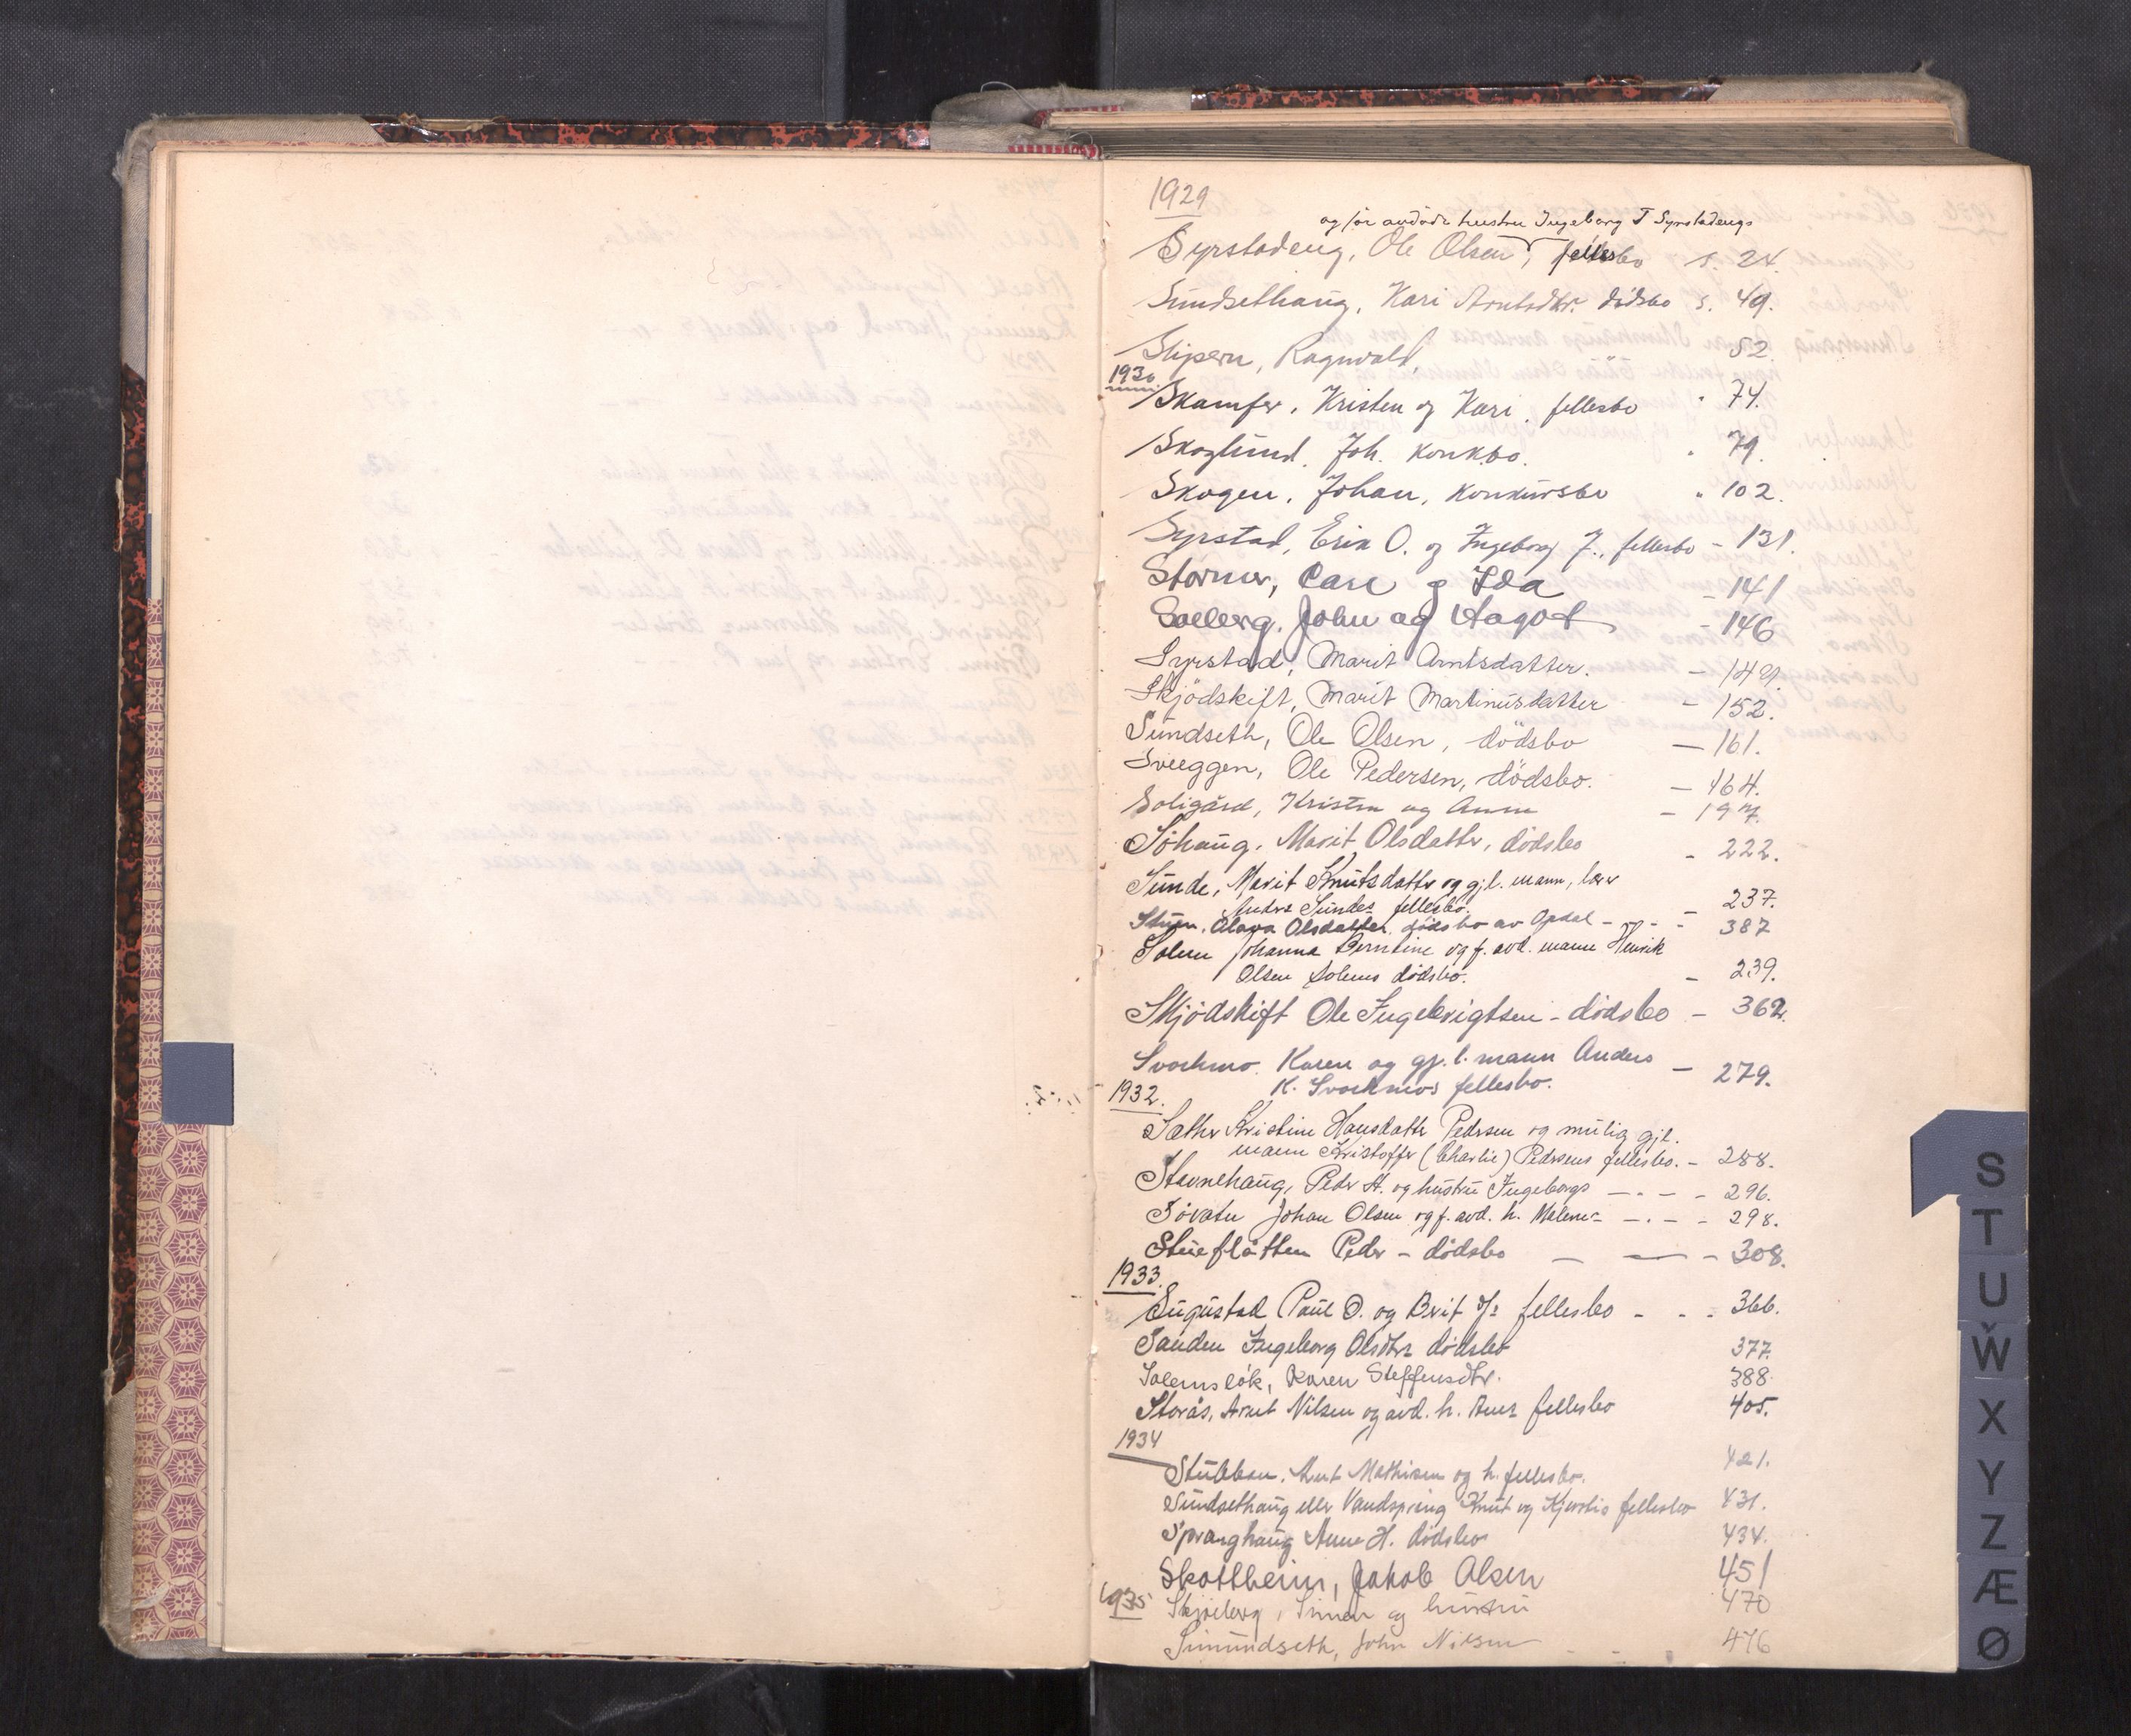 1929
og før avdøde hustru Ingeborg T Syrstadengs
Syrstadeng, Ole Olsen, fellesbo s. 24.
Sundsethaug, Kari Arntsdtr. dødsbo s. 49.
Slipern, Ragnvald, 52.
1930
Skamfer, Kristen og Kari, fellesbo " 74.
Skoglund, Joh. konkbo. " 79.
Skogen, Johan, konkursbo " 102.
Syrstad, Erik O. og Ingeborg J., fellesbo - 131.
Størmer, Carl og Ida - 141
Solberg, John og Magot - 146
Syrstad, Marit Arntsdatter. - 149.
Skjödskift, Marit Martinusdatter - 152.
Sundseth, Ole Olsen, dödsbo - 161.
Sveeggen, Ole Pedersen, dödsbo. - 164.
Soligård, Kristen og Anne - 197.
Söhaug, Marit Olsdatter, dödsbo - 222.
Sunde, Marit Knutsdatter og gjl. mann, lærer
Anders Sundes fellesbo. - 237.
Olava Olsdatter dödsbo av Opdal - - - 387
Solem Johanna Berntine og f. avd. mann Henrik
Olsen Solems dödsbo. - 239.
Skjödskift Ole Ingebrigtsen - dödsbo - 362.
Svorkmo Karen og gj. l. mann Anders - 279.
K. Svorkmos fellesbo.
1932.
Sæther Kristine Hansdatter Pedersen og mulig gjl.
mann Kristoffer (Charlie) Pedersens fellesbo. - 288.
Stavnehaug, Peder A. og hustru Ingeborgs - . - - 296.
Søvatn Johan Olsen og f. avd. h. Malenes - . - - 298.
Stueflåtten Peder - dödsbo - - - 308.
1933.
Sugustad Paul O. og Brit fellesbo - - - 366.
Sanden Ingeborg Olsdtrs dödsbo 377.
Solemslök, Karen Steffensdtr. 388.
Storås, Arnt Nilsen og avd. h. fellesbo 405.
1934
Stubban, Arnt Mathisen og h. fellesbo. 421.
Sundsethaug eller Vandspring Knut og Kjerstis fellesbo 431.
Spranghaug Anne H. dödsbo 434.
Skottheim, Jakob Olsen 451
1935
Skjølberg, Simen og hustru 470
Simundseth, John Nilsen - - " 476
S
T
U
W
X
Y
Z
Æ
Ø